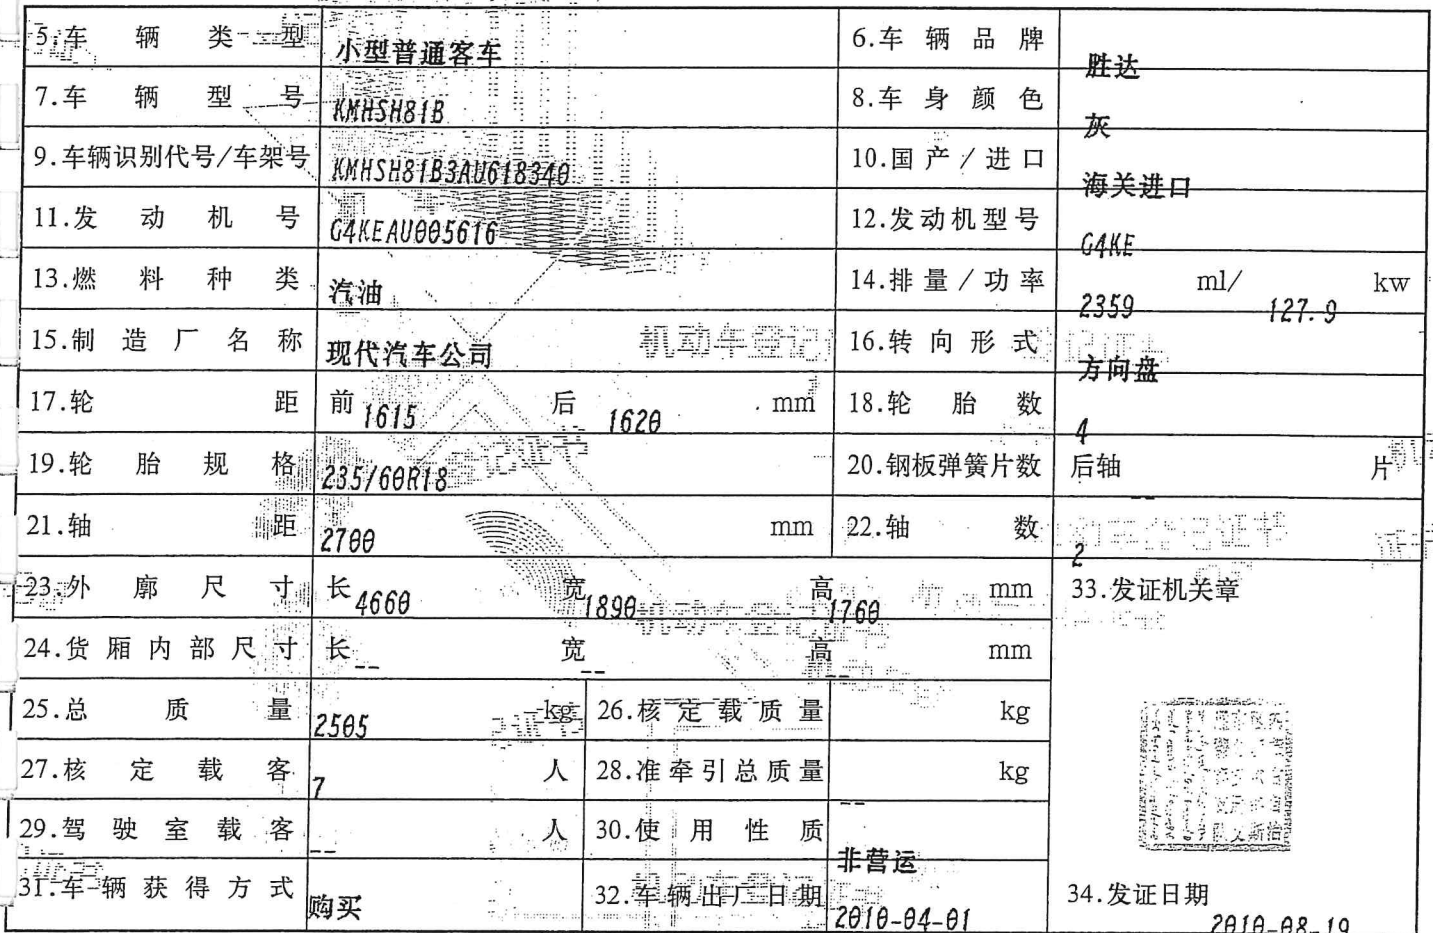 5.车辆类型 小型普通客车 6.车辆品牌 胜达
7.车辆型号 KMHSH81B 8.车身颜色 灰
9.车辆识别代号/车架号 KMHSH81B3AU618340 10.国产/进口 海关进口
11.发动机号 G4KEAU005616 12.发动机型号 G4KE
13.燃料种类 汽油 14.排量/功率 2359 ml/ 127.9 kw
15.制造厂名称 现代汽车公司 16.转向形式 方向盘
17.轮距 前 1615 后 1620 mm 18.轮胎数 4
19.轮胎规格 235/60R18 20.钢板弹簧片数 后轴 -- 片
21.轴距 2700 mm 22.轴数 2
23.外廓尺寸 长 4660 宽 1890 高 1760 mm 33.发证机关章
24.货厢内部尺寸 长 -- 宽 -- 高 -- mm
25.总质量 2505 kg 26.核定载质量 kg
27.核定载客 7 人 28.准牵引总质量 -- kg
29.驾驶室载客 -- 人 30.使用性质 非营运
31.车辆获得方式 购买 32.车辆出厂日期 2010-04-01 34.发证日期 2010-08-19